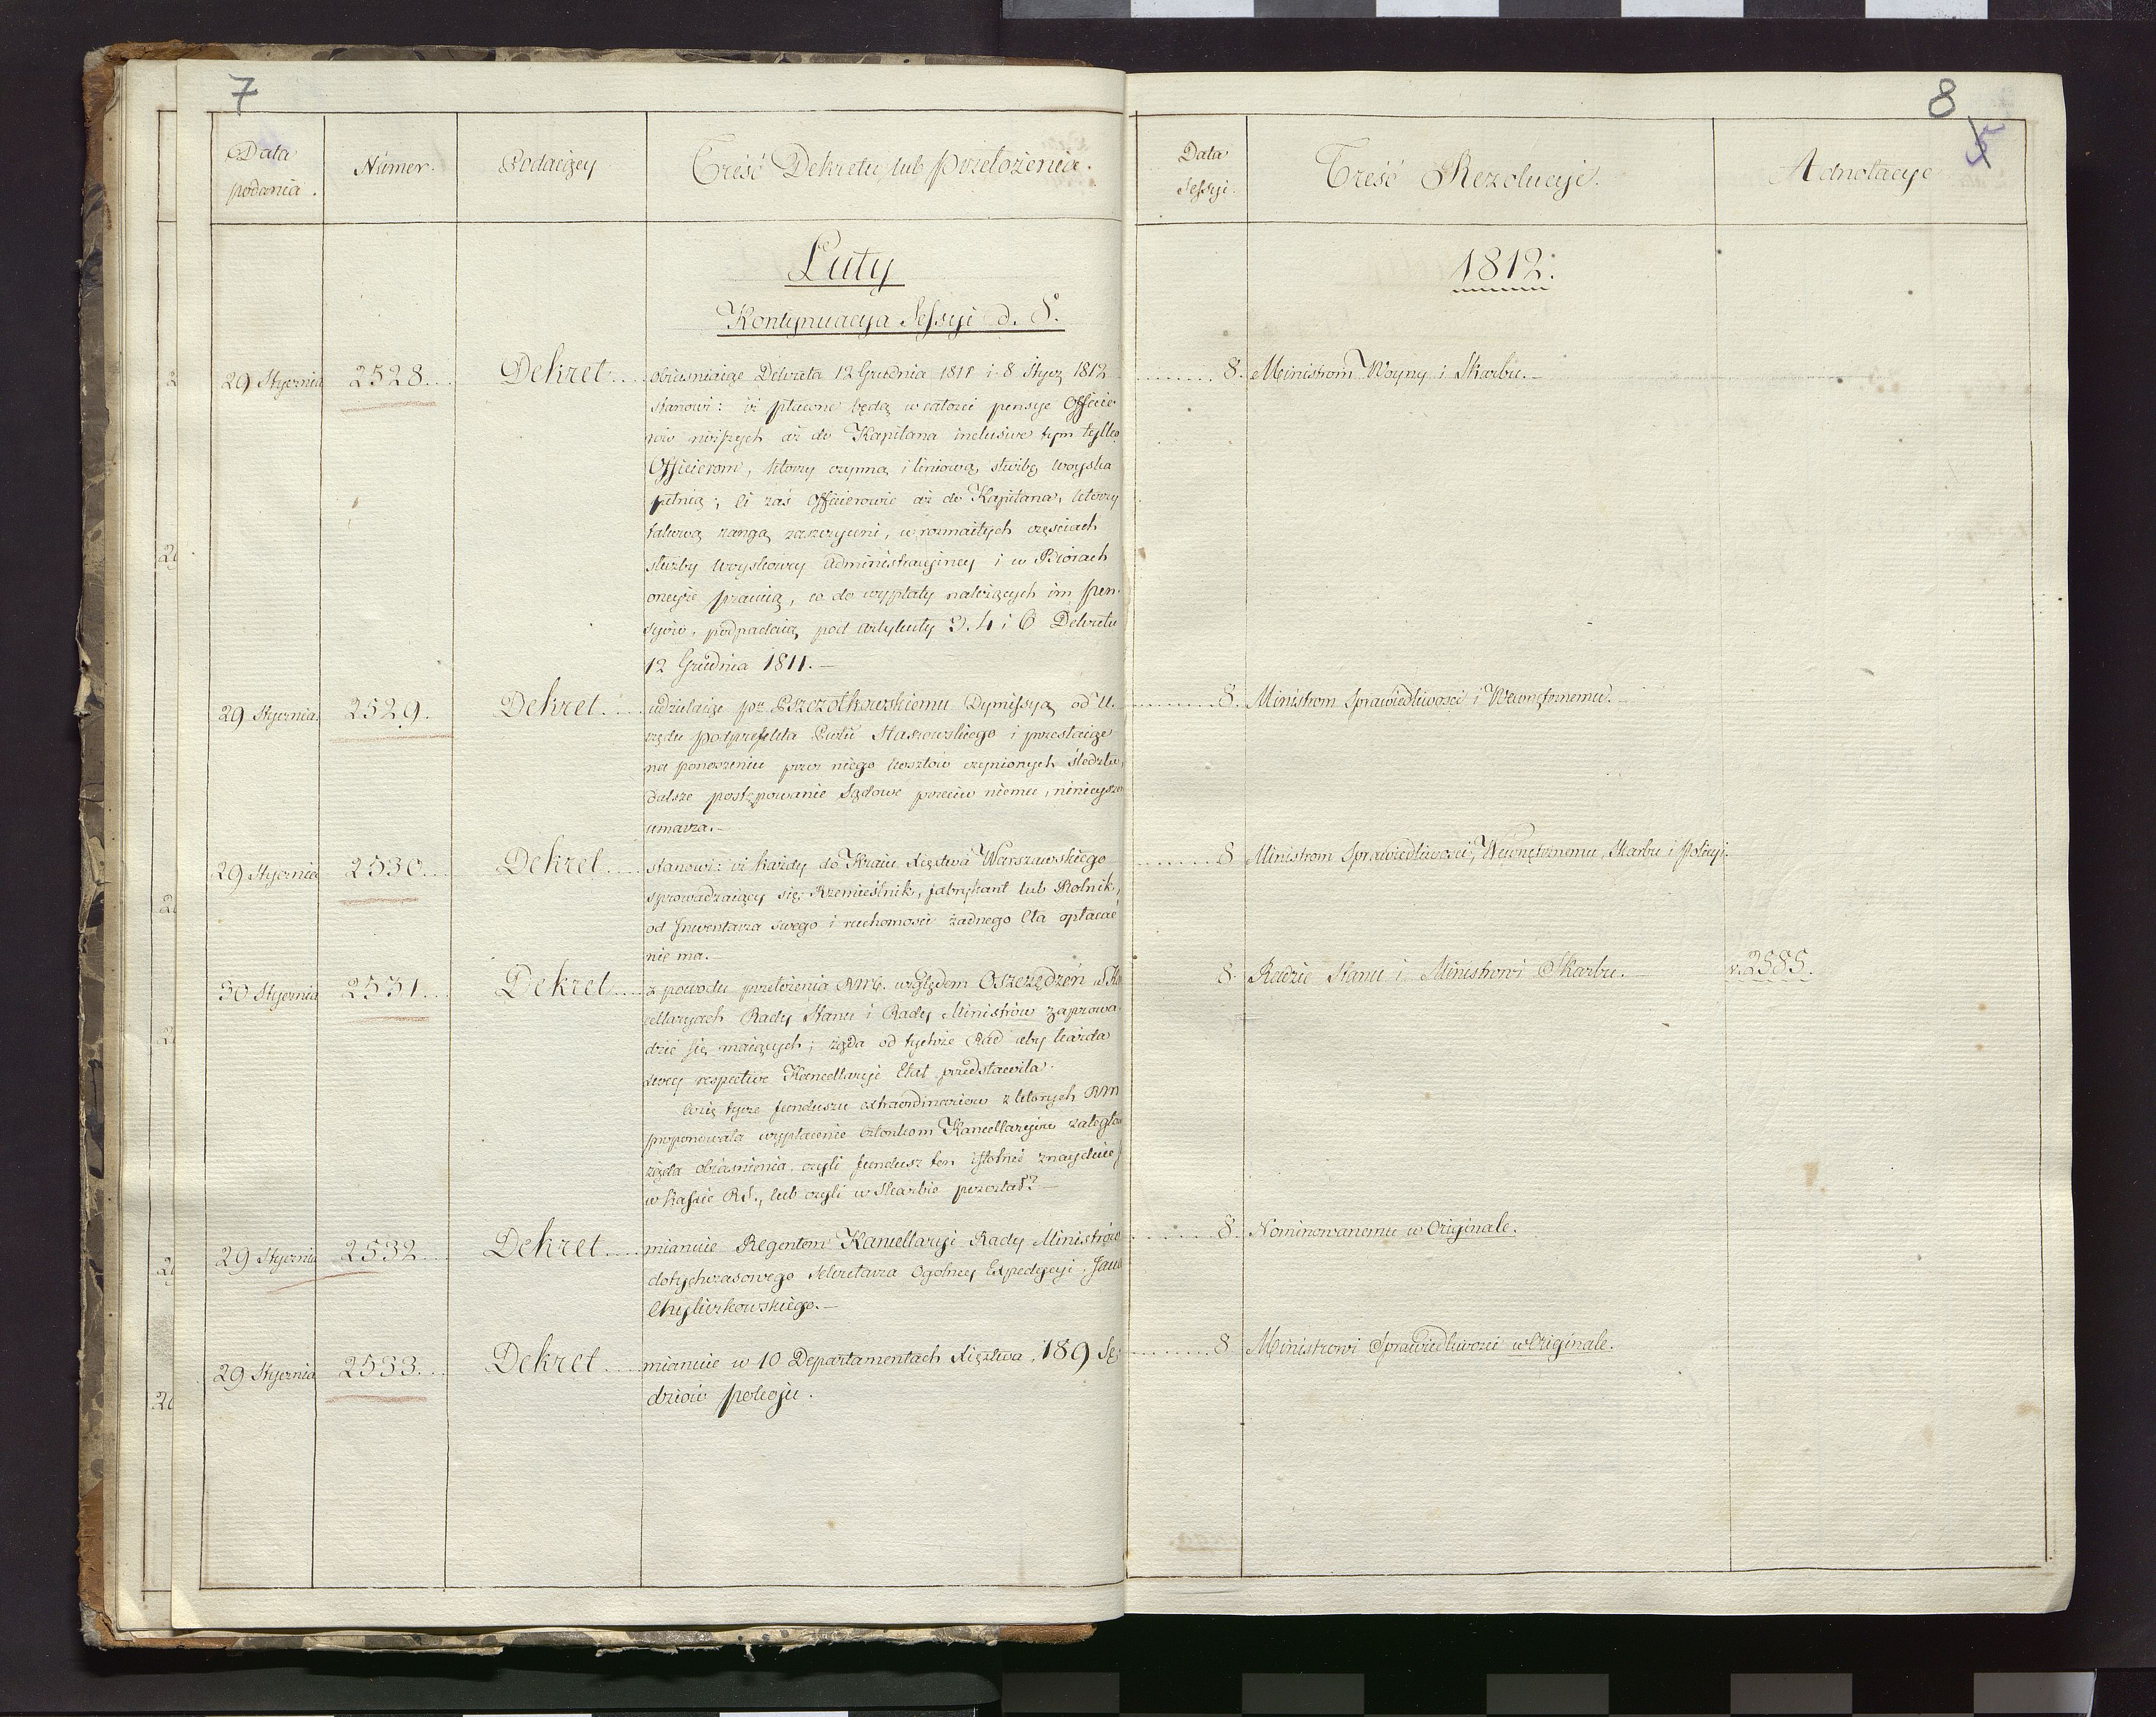 7
Data podania.
Numer.
Podaiący
Treść Dekretu lub Przełożenia.
Luty
Kontynuacya Sessyi d. 8.
29 Stycznia 2528.... Dekret....
obiaśniaiąc Dekreta 12 Grudnia 1811 i 8 Stycz 1812
stanowi: iż płacone będą w całości pensye Officie
rów niższych aż do Kapitana inclusive tym tylko
Officierom, którzy czynną i liniową służbę woyska
pełnią; Ci zaś Officierowie aż do Kapitana, którzy
takową rangą zaszczyceni, w rozmaitych częściach
służby woyskowey administracyiney i w Biórach
oneyże pracuią, co do wypłaty należących im pen-
syów, podpadaią pod artykuły 3. 4 i 6 Dekretu
12 Grudnia 1811.—
29 Stycznia. 2529. Dekret....
udzielaiąc pr Pszczołkowskiemu Dymissyą od U-
rzędu podprefekta Pwtu Staszowskiego i przestaiąc
na ponoszeniu przez niego kosztów czynionych śledztw,
dalsze postępowanie Sądowe przeciw niemu, ninieysze
umarza.—
29 Stycznia 2530... Dekret....
stanowi: iż każdy do Kraiu Xięstwa Warszawskiego
sprowadzaiący się, Rzemieślnik, fabrykant lub Rolnik,
od Inwentarza swego i ruchomości żadnego Cła opłacać
nie ma.—
30 Stycznia 2531.... Dekret....
z powodu przełożenia RMc. względem Oszczędzeń w Kan
cellaryach Rady Stanu i Rady Ministrów zaprowa
dzić się maiących; żąda od tychże Rad aby każda
swey respective Kancellaryi Etat przedstawiła.
Co się tycze funduszu extraordinariów z których RM
proponowała wypłacenie Członkom Kancellaryów zaległo
żąda obiaśnienia, czyli fundusz ten istotnie znayduie s
w Kassie RS., lub czyli w Skarbie pozostał?—
29 Stycznia 2532... Dekret....
mianuie Regentem Kancellaryi Rady Ministrów
dotychczasowego Sekretarza Ogolney Expedycyi, Jana
Chyliczkowskiego.—
29 Stycznia 2533... Dekret....
mianuie w 10 Departamentach Xięstwa, 189 Sę-
dziów pokoju.
8
5
Data Sessyi.
Treść Rezolucyi.
Adnotacye
1812.
........8. Ministrom Woyny i Skarbu.—
........8. Ministrom Sprawiedliwości i Wewnętrznemu.—
........8 Ministrom Sprawiedliwości, Wewnętrznemu, Skarbu i Policyi.
8. Radzie Stanu i Ministrowi Skarbu.— v. 2585.
........8. Nominowanemu w Originale.
........8 Ministrowi Sprawiedliwości w Originale.